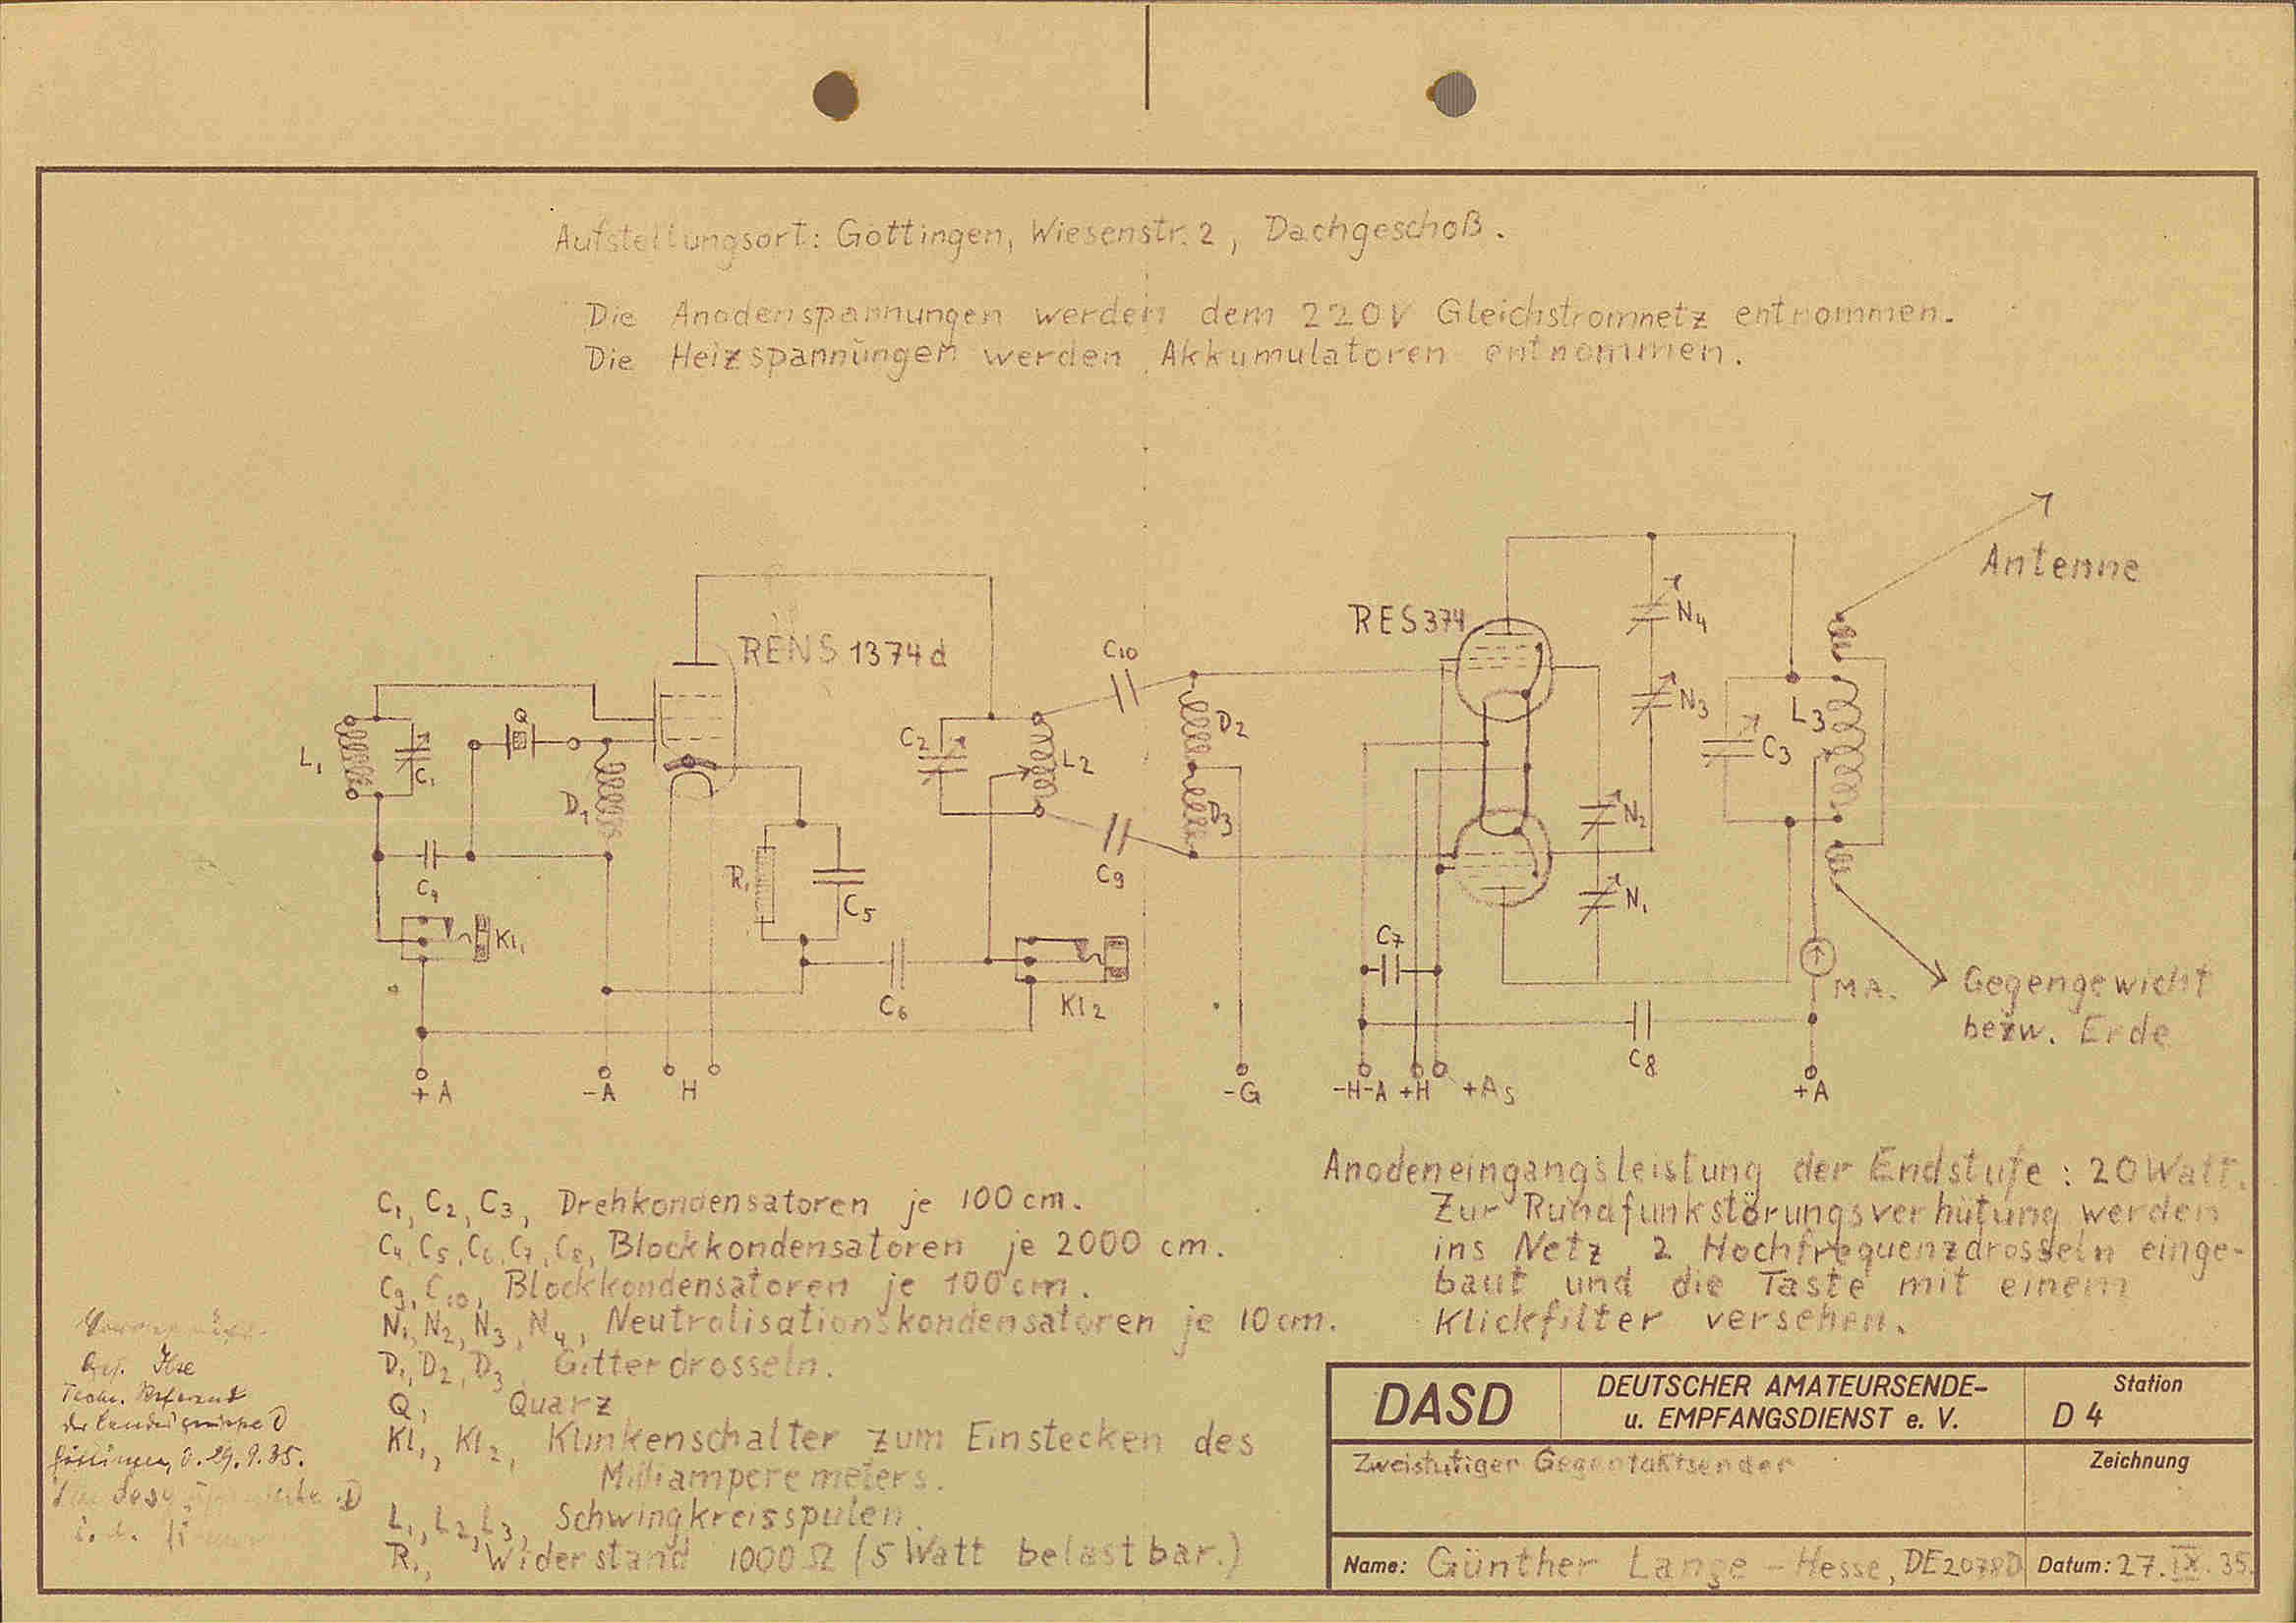 Aufstellungsort: Göttingen, Wiesenstr. 2, Dachgeschoß.
Die Anodenspannungen werden dem 220V Gleichstromnetz entnommen.
Die Heizspannungen werden Akkumulatoren entnommen.
Antenne
RES374
N4
RENS 1374d
C10
N3
Q
D2
L3
C2
L2
C3
L1
C1
D1
D3
N2
R1
C4
C9
C5
N1
Kl1
C7
MA.
Gegengewicht
bezw. Erde
C6
Kl2
C8
+A
-A
H
-G
-H-A
+H
+As
+A
Anodeneingangsleistung der Endstufe: 20 Watt.
Zur Rundfunkstörungsverhütung werden
ins Netz 2 Hochfrequenzdrosseln einge-
baut und die Taste mit einem
Klickfilter versehen.
C1, C2, C3, Drehkondensatoren je 100 cm.
C4, C5, C6, C7, C8, Blockkondensatoren je 2000 cm.
C9, C10, Blockkondensatoren je 100 cm.
N1, N2, N3, N4, Neutralisationskondensatoren je 10 cm.
D1, D2, D3, Gitterdrosseln.
Q, Quarz
Kl1, Kl2, Klinkenschalter zum Einstecken des
Milliamperemeters.
L1, L2, L3, Schwingkreisspulen.
R1, Widerstand 1000 Ω (5 Watt belastbar.)
Techn. Referent
der Landesgruppe D
Göttingen, d. 29.9.35.
DASD
DEUTSCHER AMATEURSENDE-
u. EMPFANGSDIENST e. V.
Station
D 4
Zweistufiger Gegentaktsender
Zeichnung
Name: Günther Lange-Hesse, DE2078D
Datum: 27.IX.35.